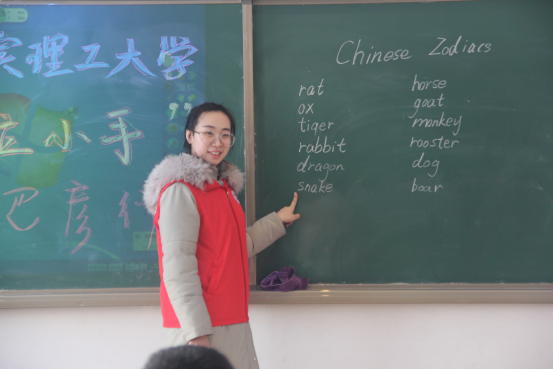 理工大学
小手
巴彦
Chinese Zodiacs
rat
ox
tiger
rabbit
dragon
snake
horse
goat
monkey
rooster
dog
boar